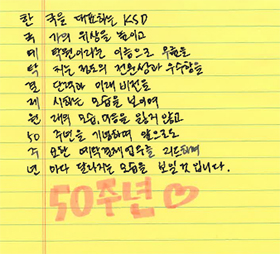 한 국을 대표하는 KSD
국 가의 위상을 높이고
예 탁원이라는 이름으로 우뚝
탁 치는 정도의 전문성과 우수함을
결 단력과 미래 비전을
제 시하는 모습을 보이며
원 래의 모습, 마음을 잃지 않고
50 주년을 기념하며 앞으로도
주 요한 예탁결제 업무를 리드하며
년 마다 달라지는 모습을 보일 것 입니다.
50주년♡